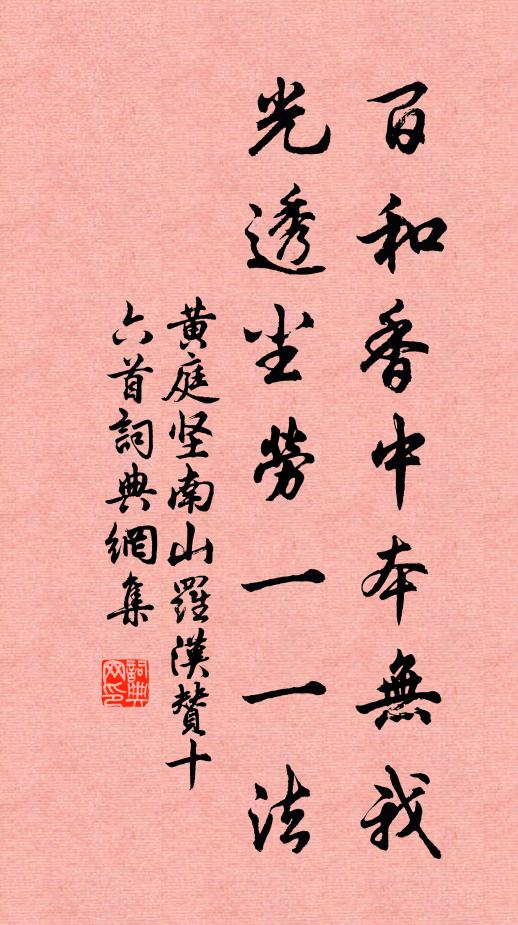 百和香中本無我
光透尘勞一一法
黃庭坚南山羅漢贊十
六首詞典網集
詞典
网印